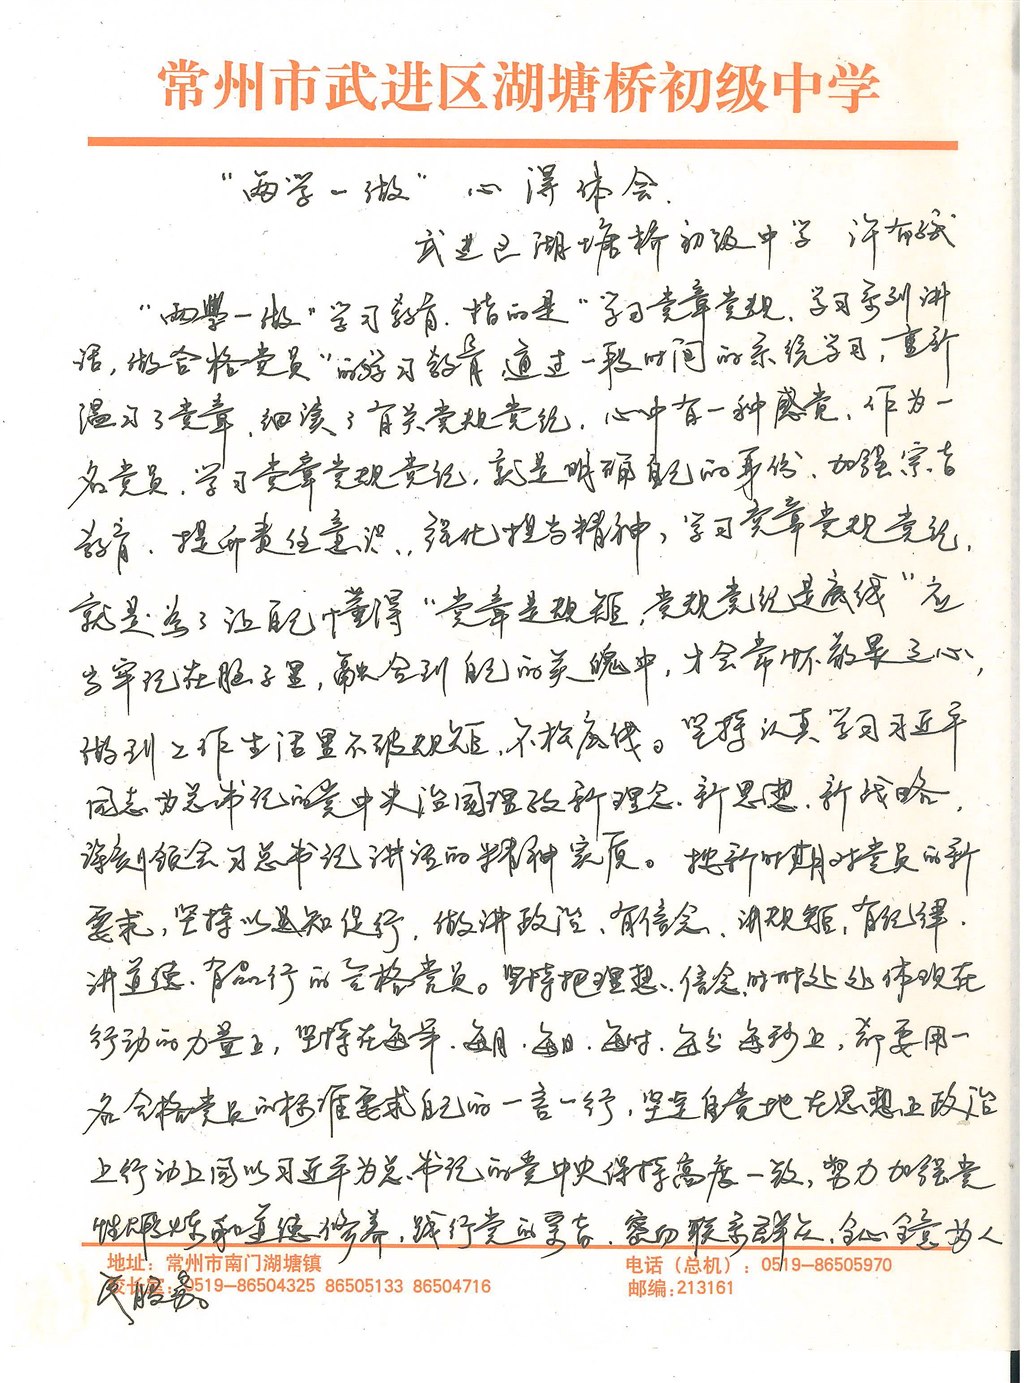 常州市武进区湖塘桥初级中学
“两学一做”心得体会.
武进区湖塘桥初级中学 许有
“两學一做”学习教育.指的是“学习党章党规、学习系列讲
话,做合格党员”的学习教育,通过一段时间的系统学习,重新
温习了党章,细读了有关党规党纪.心中有一种感觉、作为一
名党员、学习党章党规党纪,就是明确自己的身份、加强宗旨
教育、提升责任意识、强化担当精神,学习党章党规党纪,
就是为了让自己懂得“党章是规矩,党规党纪是底线”应
当牢记在脑子里,融合到自己的灵魂中,才会常怀敬畏之心,
做到工作生活里不破规矩,不松底线。坚持认真学习习近平
同志为总书记的党中央治国理政新理念、新思想、新战略,
深刻领会习总书记讲话的精神实质。按新时期对党员的新
要求,坚持以知促行,做讲政治、有信念、讲规矩,有纪律.
讲道德、有品行的合格党员。坚持把理想、信念,时时处处体现在
行动的力量上,坚持在每年、每月、每日、每时、每分每秒上,都要用一
名合格党员的标准要求自己的一言一行,坚定自觉地在思想上政治
上行动上同以习近平为总书记的党中央保持高度一致,努力加强党
性煅炼和道德修养,践行党的宗旨、密切联系群众,全心全意为人
民服务。
地址:常州市南门湖塘镇 电话(总机):0519—86505970
校长室:0519—86504325 86505133 86504716 邮编:213161